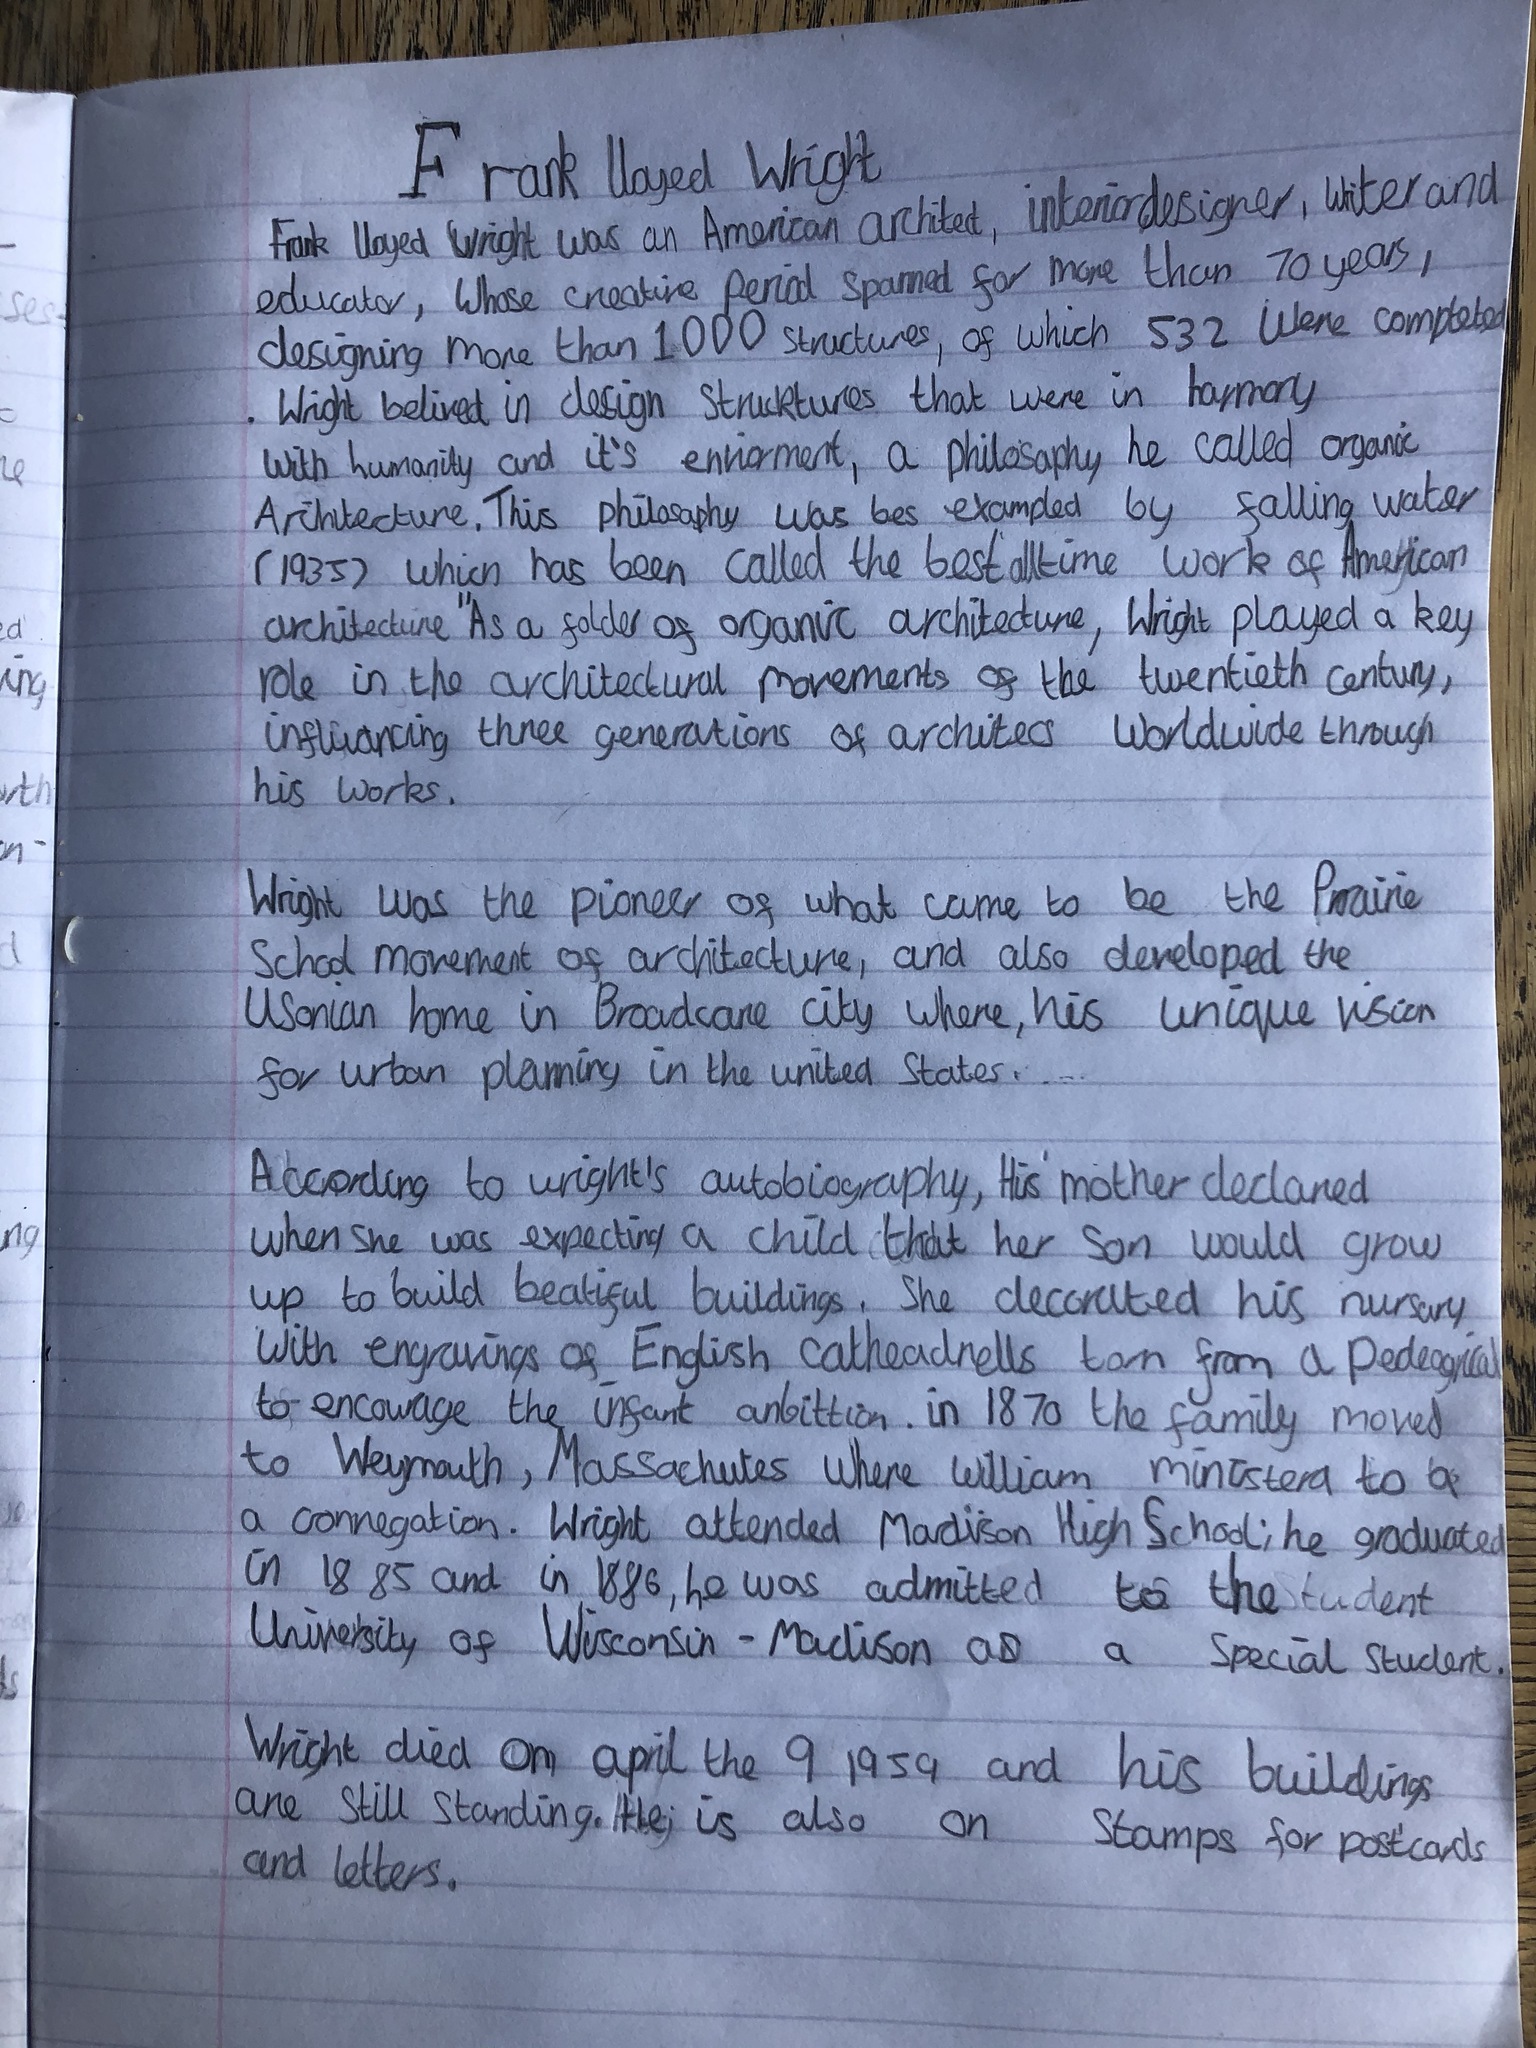 Frank lloyed Wright
Frank lloyed Wright was an American architect, interior designer, writer and
educator, whose creative period spanned for more than 70 years,
designing more than 1000 structures, of which 532 were completed
. Wright belived in design strucktures that were in harmony
with humanity and it's enviorment, a philosaphy he called organic
Architecture. This philosaphy was bes exampled by falling water
(1935) which has been called the best alltime work of American
architecture" As a folder of organic architecture, Wright played a key
role in the architectural movements of the twentieth century,
influancing three generations of architecs worldwide through
his works.
Wright was the pioneer of what came to be the Prairie
School movement of architecture, and also developed the
Usonian home in Broadcare city where, his unique vision
for urban planning in the united States.
According to wright's autobiography, His mother declared
when she was expecting a child that her son would grow
up to build beatiful buildings. She decorated his nursary
with engravings of English catheadrells torn from a
to encourage the infant anbittion. in 1870 the family moved
to Weymouth, Massachutes where william ministerd to
a connegation. Wright attended Madison High School; he graduated
in 1885 and in 1886, he was admitted to the student
University of Wisconsin - Madison as a special student.
Wright died on april the 9 1959 and his buildings
are still standing. He is also on stamps for postcards
and letters.
ses-
ed
ving
orth
on-
ing